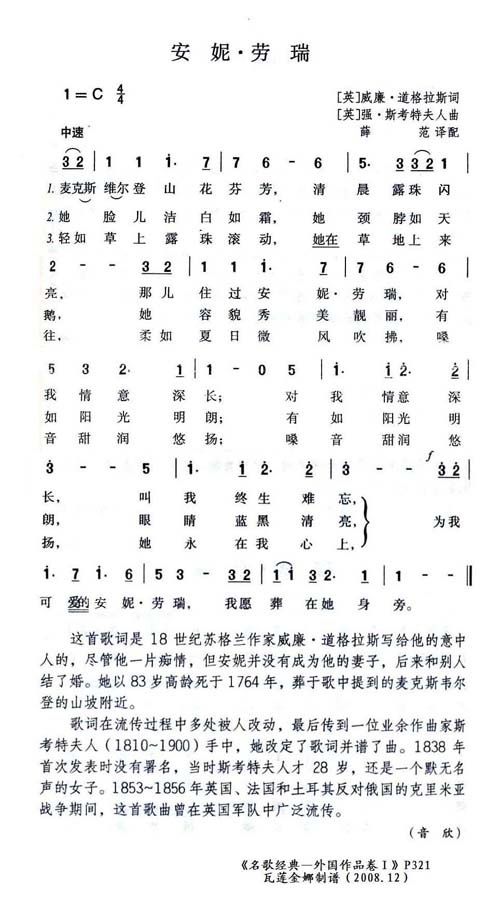 安 妮·劳 瑞
1=C 4/4
[英]威廉·道格拉斯词
[英]强·斯考特夫人曲
中速
薛 范译配
3 2 | 1 1 1· 7 | 7 6 - 6 | 5· 3 3 2 1 |
1. 麦克斯 维尔登 山 花 芬 芳, 清 晨 露珠 闪
2. 她 脸 儿 洁 白 如 霜, 她 颈 脖 如 天
3. 轻 如 草 上 露 珠 滚 动, 她在 草 地 上 来
2 - - 3 2 | 1 1 1· 7 | 7 6 - 6 |
亮, 那 儿 住 过 安 妮·劳 瑞, 对
鹅, 她 容 貌 秀 美 靓 丽, 有
往, 柔 如 夏 日 微 风 吹 拂, 嗓
5 3 2· 1 | 1 - 0 5 | 1· 1 2· 2 |
我 情 意 深 长; 对 我 情意 深
如 阳 光 明 朗; 有 如 阳光 明
音 甜 润 悠 扬; 嗓 音 甜润 悠
f
3 - - 5 | 1· 1 2· 2 | 3 - - 3 2 |
长, 叫 我 终 生 难 忘,
朗, 眼 睛 蓝 黑 清 亮, 为我
扬, 她 永 在 我 心 上,
1· 7 1· 6 | 5 3 - 3 2 | 1 1 3 2· 1 | 1 - - ‖
可 爱的 安 妮·劳 瑞, 我愿 葬 在 她 身 旁。
这首歌词是 18 世纪苏格兰作家威廉·道格拉斯写给他的意中
人的，尽管他一片痴情，但安妮并没有成为他的妻子，后来和别人
结了婚。她以 83 岁高龄死于 1764 年，葬于歌中提到的麦克斯韦尔
登的山坡附近。
歌词在流传过程中多处被人改动，最后传到一位业余作曲家斯
考特夫人（1810~1900）手中，她改定了歌词并谱了曲。1838 年
首次发表时没有署名，当时斯考特夫人才 28 岁，还是一个默无名
声的女子。1853~1856 年英国、法国和土耳其反对俄国的克里米亚
战争期间，这首歌曲曾在英国军队中广泛流传。
（音 欣）
《名歌经典—外国作品卷Ⅰ》P321
瓦莲金娜制谱（2008.12）